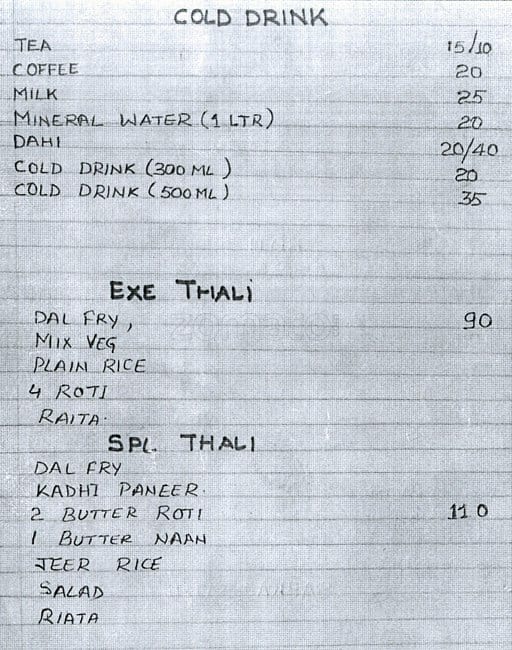 COLD DRINK
TEA 15/10
COFFEE 20
MILK 25
MINERAL WATER (1 LTR) 20
DAHI 20/40
COLD DRINK (300 ML) 20
COLD DRINK (500 ML) 35
EXE THALI
DAL FRY, 90
MIX VEG
PLAIN RICE
4 ROTI
RAITA.
SPL. THALI
DAL FRY
KADHI PANEER.
2 BUTTER ROTI 110
1 BUTTER NAAN
JEER RICE
SALAD
RIATA